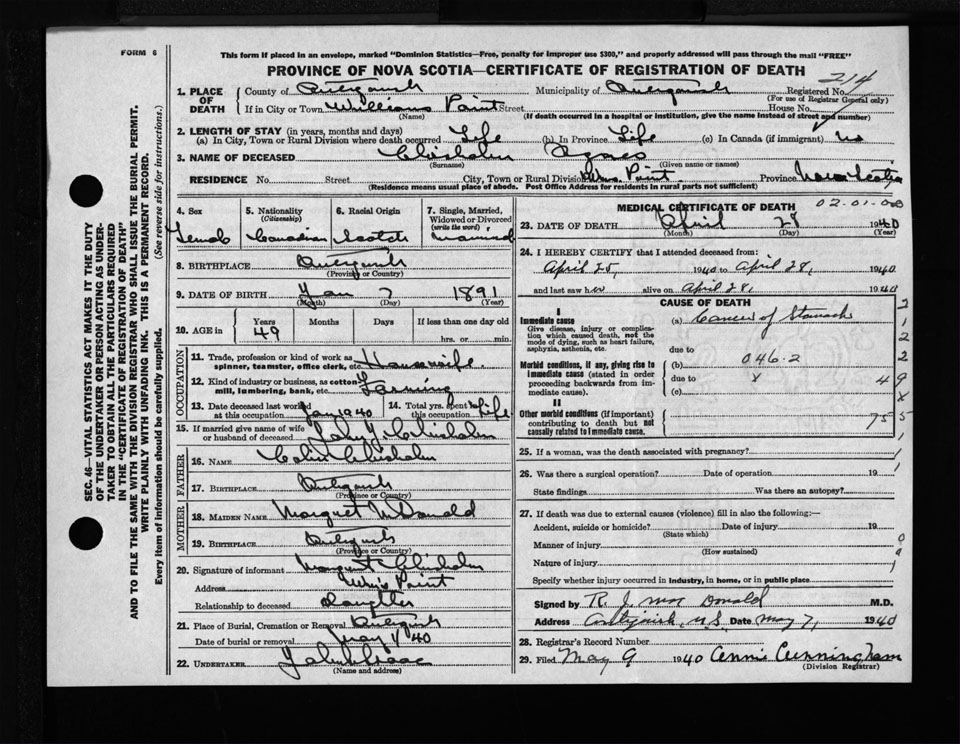 FORM 6
This form if placed in an envelope, marked "Dominion Statistics—Free, penalty for improper use $300," and properly addressed will pass through the mail "FREE"
PROVINCE OF NOVA SCOTIA—CERTIFICATE OF REGISTRATION OF DEATH
214
1. PLACE OF DEATH County of Antigonish Municipality of Antigonish Registered No.
(For use of Registrar General only)
If in City or Town Williams Point Street House No.
(Name) (If death occurred in a hospital or institution, give the name instead of street and number)
2. LENGTH OF STAY (in years, months and days)
(a) In City, Town or Rural Division where death occurred Life (b) In Province Life (c) In Canada (if immigrant) no
3. NAME OF DECEASED Chisholm Agnes
(Surname) (Given name or names)
RESIDENCE No. Street City, Town or Rural Division Wms. Point Province Nova Scotia
(Residence means usual place of abode. Post Office Address for residents in rural parts not sufficient)
4. Sex 5. Nationality (Citizenship) 6. Racial Origin 7. Single, Married, Widowed or Divorced (write the word)
Female Canadian Scotch married
8. BIRTHPLACE Antigonish
(Province or Country)
9. DATE OF BIRTH Jan 7 1891
(Month) (Day) (Year)
10. AGE in Years Months Days If less than one day old
49 hrs. or min.
OCCUPATION
11. Trade, profession or kind of work as spinner, teamster, office clerk, etc. Housewife.
12. Kind of industry or business, as cotton mill, lumbering, bank, etc. Farming
13. Date deceased last worked at this occupation Jan 1940 14. Total yrs. spent in this occupation Life
15. If married give name of wife or husband of deceased John J. Chisholm
FATHER
16. NAME Colin Chisholm
17. BIRTHPLACE Antigonish
(Province or Country)
MOTHER
18. MAIDEN NAME Margret McDonald
19. BIRTHPLACE Antigonish
(Province or Country)
20. Signature of informant Margaret Chisholm
Address Wms Point
Relationship to deceased daughter
21. Place of Burial, Cremation or Removal Antigonish
Date of burial or removal May 1 40
22. UNDERTAKER
(Name and address)
MEDICAL CERTIFICATE OF DEATH
23. DATE OF DEATH April 28 1940
(Month) (Day) (Year)
24. I HEREBY CERTIFY that I attended deceased from:
April 25, 1940 to April 28, 1940
and last saw her alive on April 28, 1940
CAUSE OF DEATH
I
Immediate cause (a) Cancer of Stomach
Give disease, injury or complication which caused death, not the mode of dying, such as heart failure, asphyxia, asthenia, etc.
due to
Morbid conditions, if any, giving rise to immediate cause (stated in order proceeding backwards from immediate cause).
(b) 046.2
due to x
(c)
II
Other morbid conditions (if important) contributing to death but not causally related to immediate cause.
25. If a woman, was the death associated with pregnancy?
26. Was there a surgical operation? Date of operation 19
State findings Was there an autopsy?
27. If death was due to external causes (violence) fill in also the following:—
Accident, suicide or homicide? Date of injury 19
(State which)
Manner of injury
(How sustained)
Nature of injury
Specify whether injury occurred in industry, in home, or in public place
Signed by R. J. MacDonald M.D.
Address Antigonish, N.S. Date May 7, 1940
28. Registrar's Record Number
29. Filed May 9 1940 Annie Cunningham
(Division Registrar)
SEC. 46—VITAL STATISTICS ACT MAKES IT THE DUTY
OF THE UNDERTAKER OR PERSON ACTING AS UNDER-
TAKER TO OBTAIN ALL THE PARTICULARS REQUIRED
IN THE "CERTIFICATE OF REGISTRATION OF DEATH"
AND TO FILE THE SAME WITH THE DIVISION REGISTRAR WHO SHALL ISSUE THE BURIAL PERMIT.
WRITE PLAINLY WITH UNFADING INK. THIS IS A PERMANENT RECORD.
Every item of information should be carefully supplied. (See reverse side for instructions.)